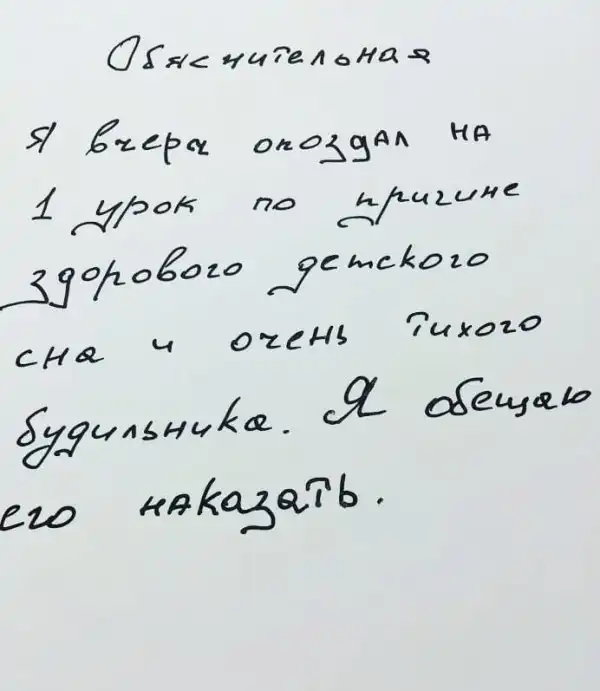 Обяснительная
Я вчера опоздал на
1 урок по причине
здорового детского
сна и очень тихого
будильника. Я обещаю
его наказать.